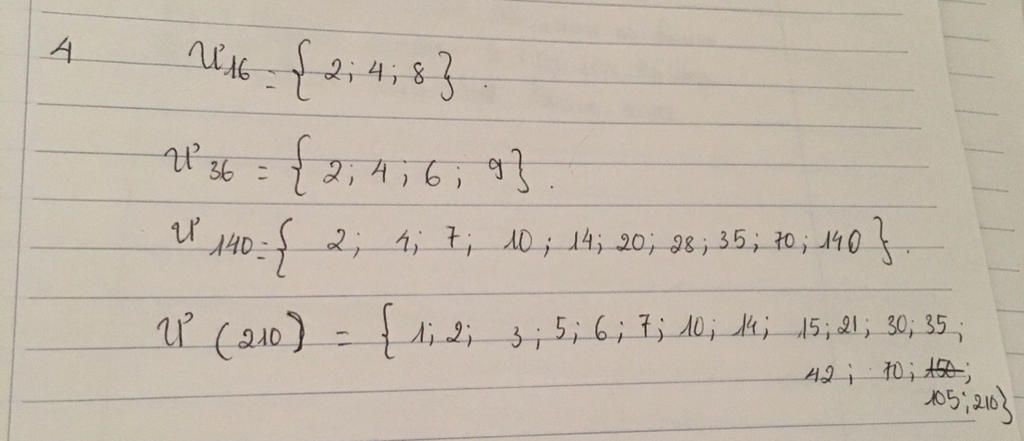 4 Ư16 = { 2; 4; 8 }.
Ư36 = { 2; 4; 6; 9 }.
Ư140 = { 2; 4; 7; 10; 14; 20; 28; 35; 70; 140 }.
Ư (210) = { 1; 2; 3; 5; 6; 7; 10; 14; 15; 21; 30; 35;
42; 70; 150;
105; 210 }